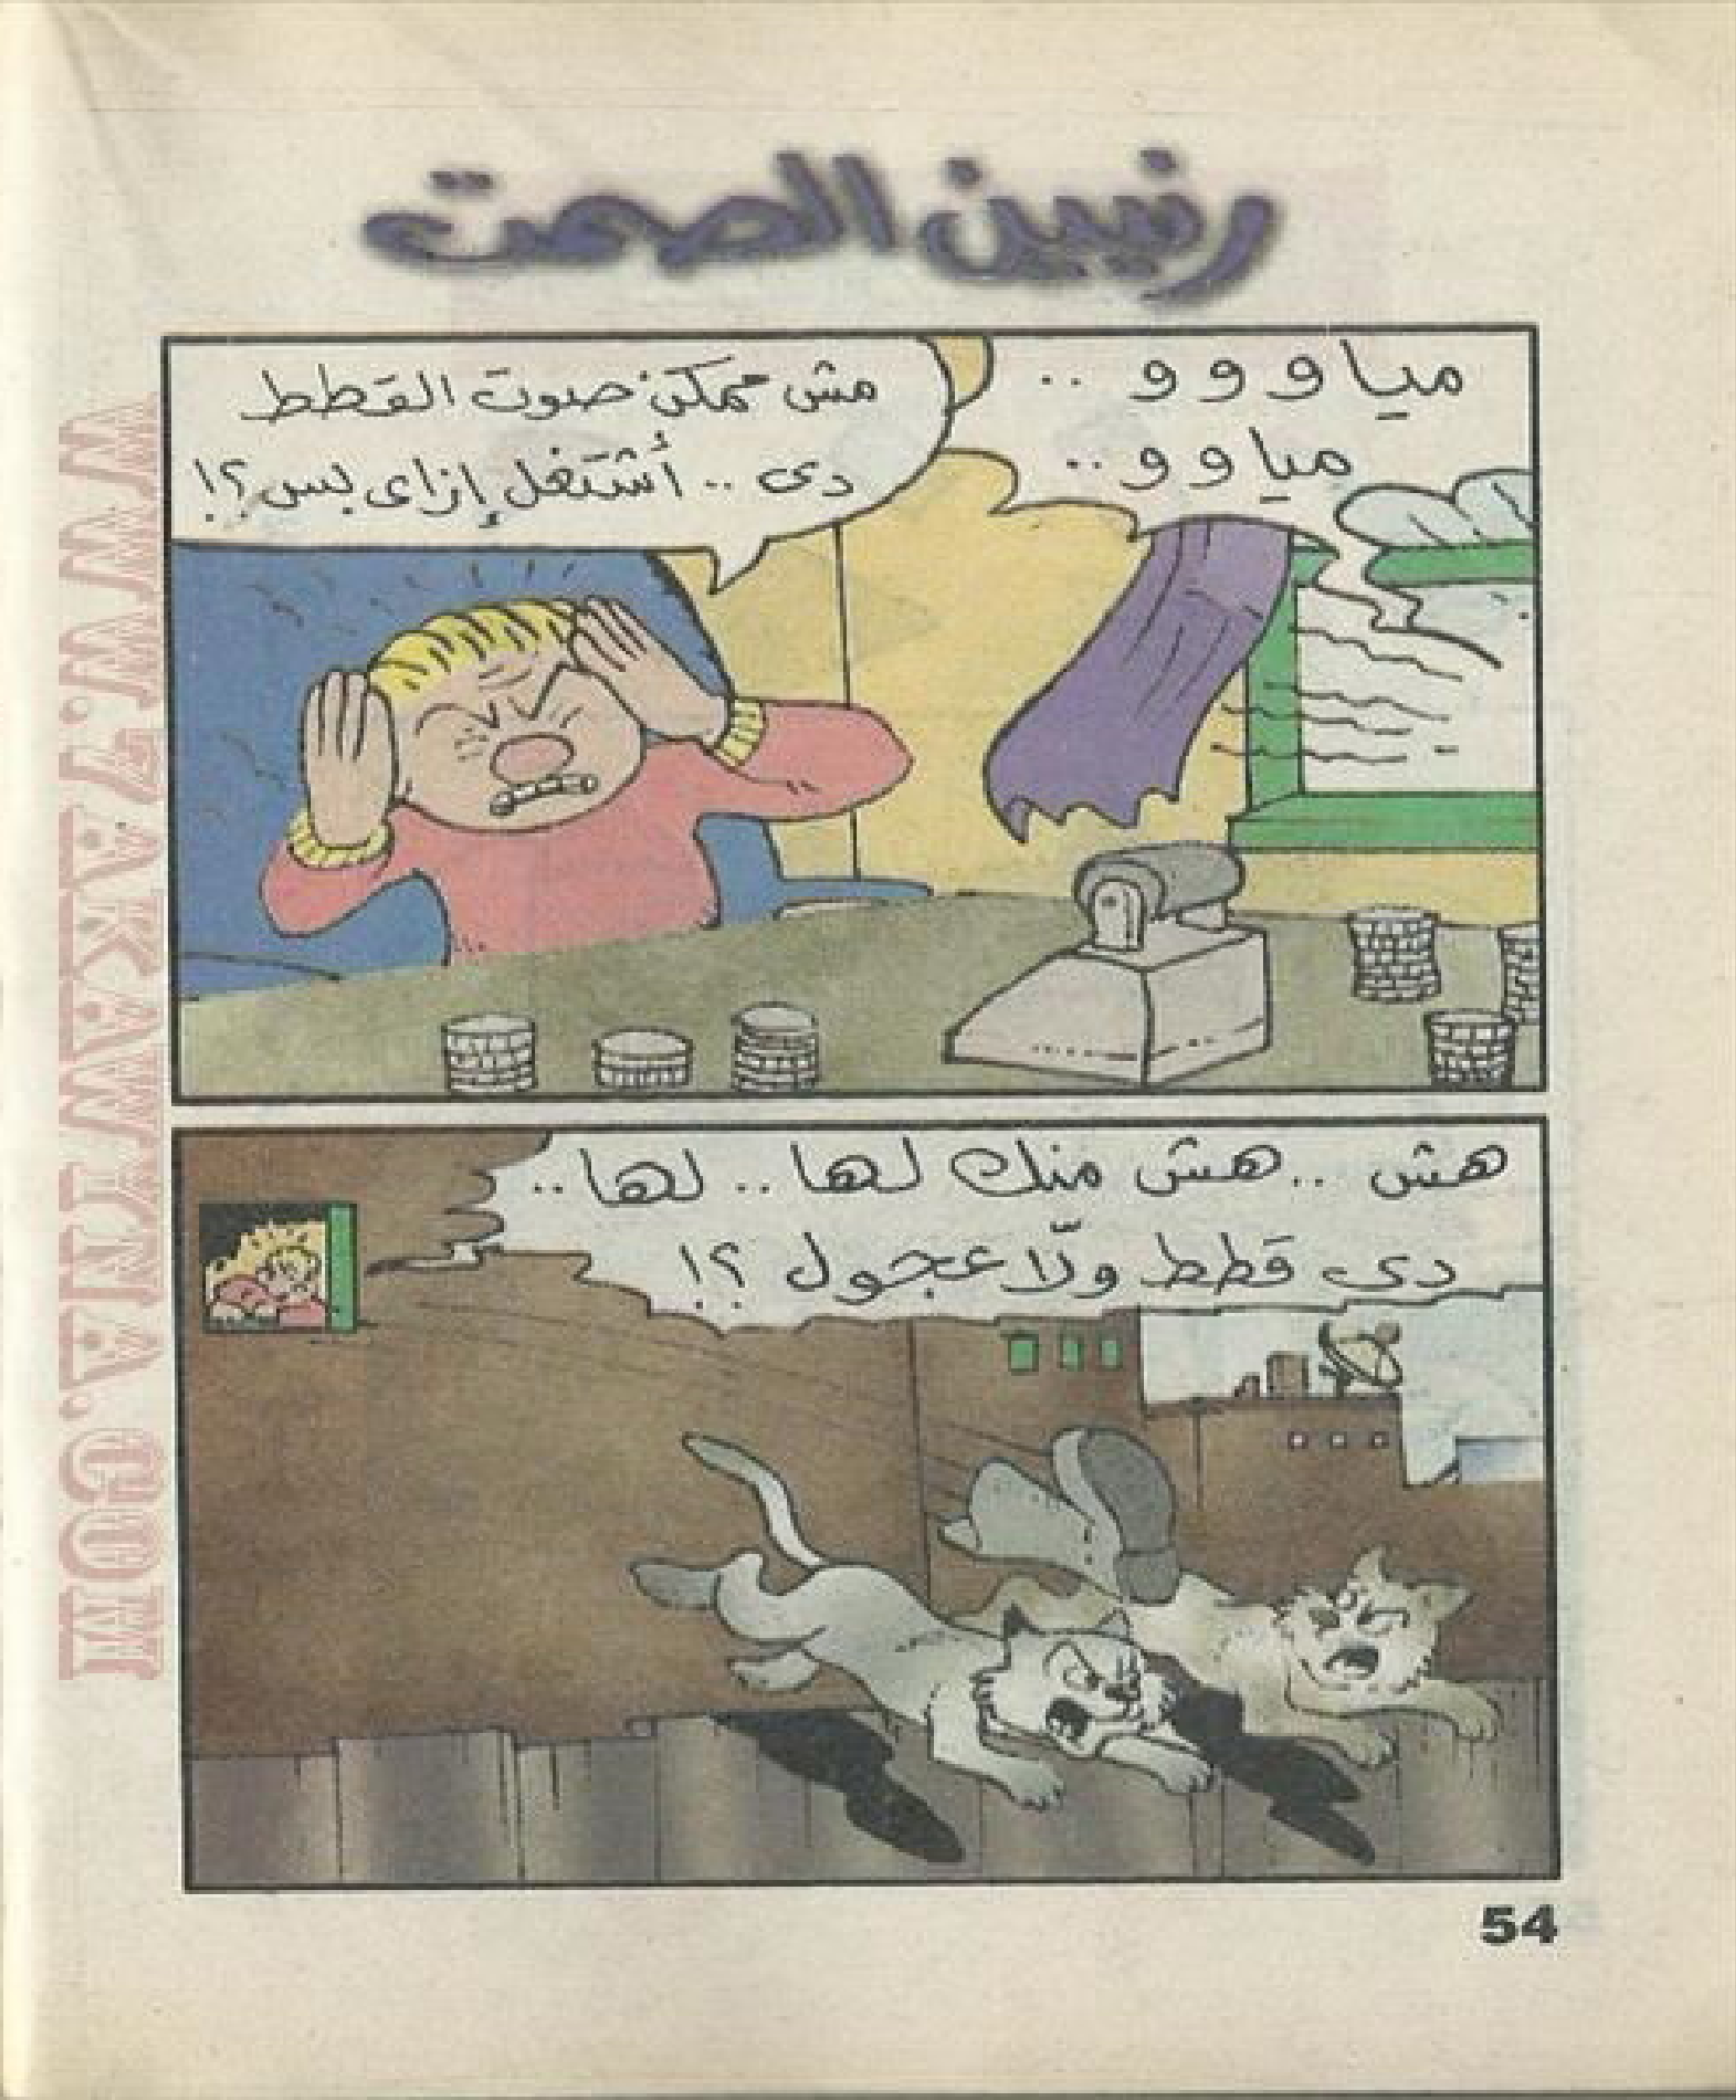 رنين الصمت
مياووو ..
مياوو ..
مش ممكن صوت القطط
دى .. أشتغل إزاى بس؟!
هش .. هش منك لها .. لها ..
دى قطط ولّا عجول ؟!
54
WWW.7AKAWITNA.COM